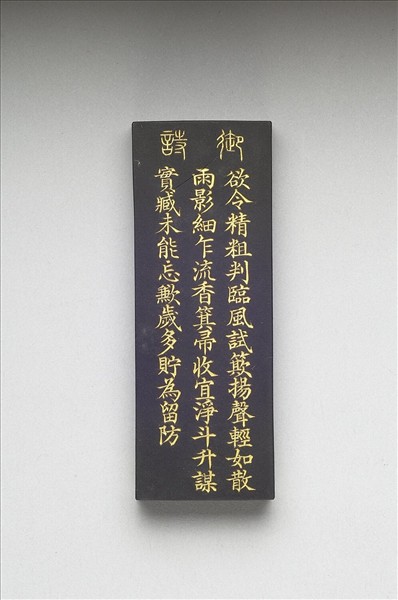 御詩
欲令精粗判臨風試簸揚聲輕如散
雨影細乍流香箕帚收宜淨斗升謀
實藏未能忘歉歲多貯為留防